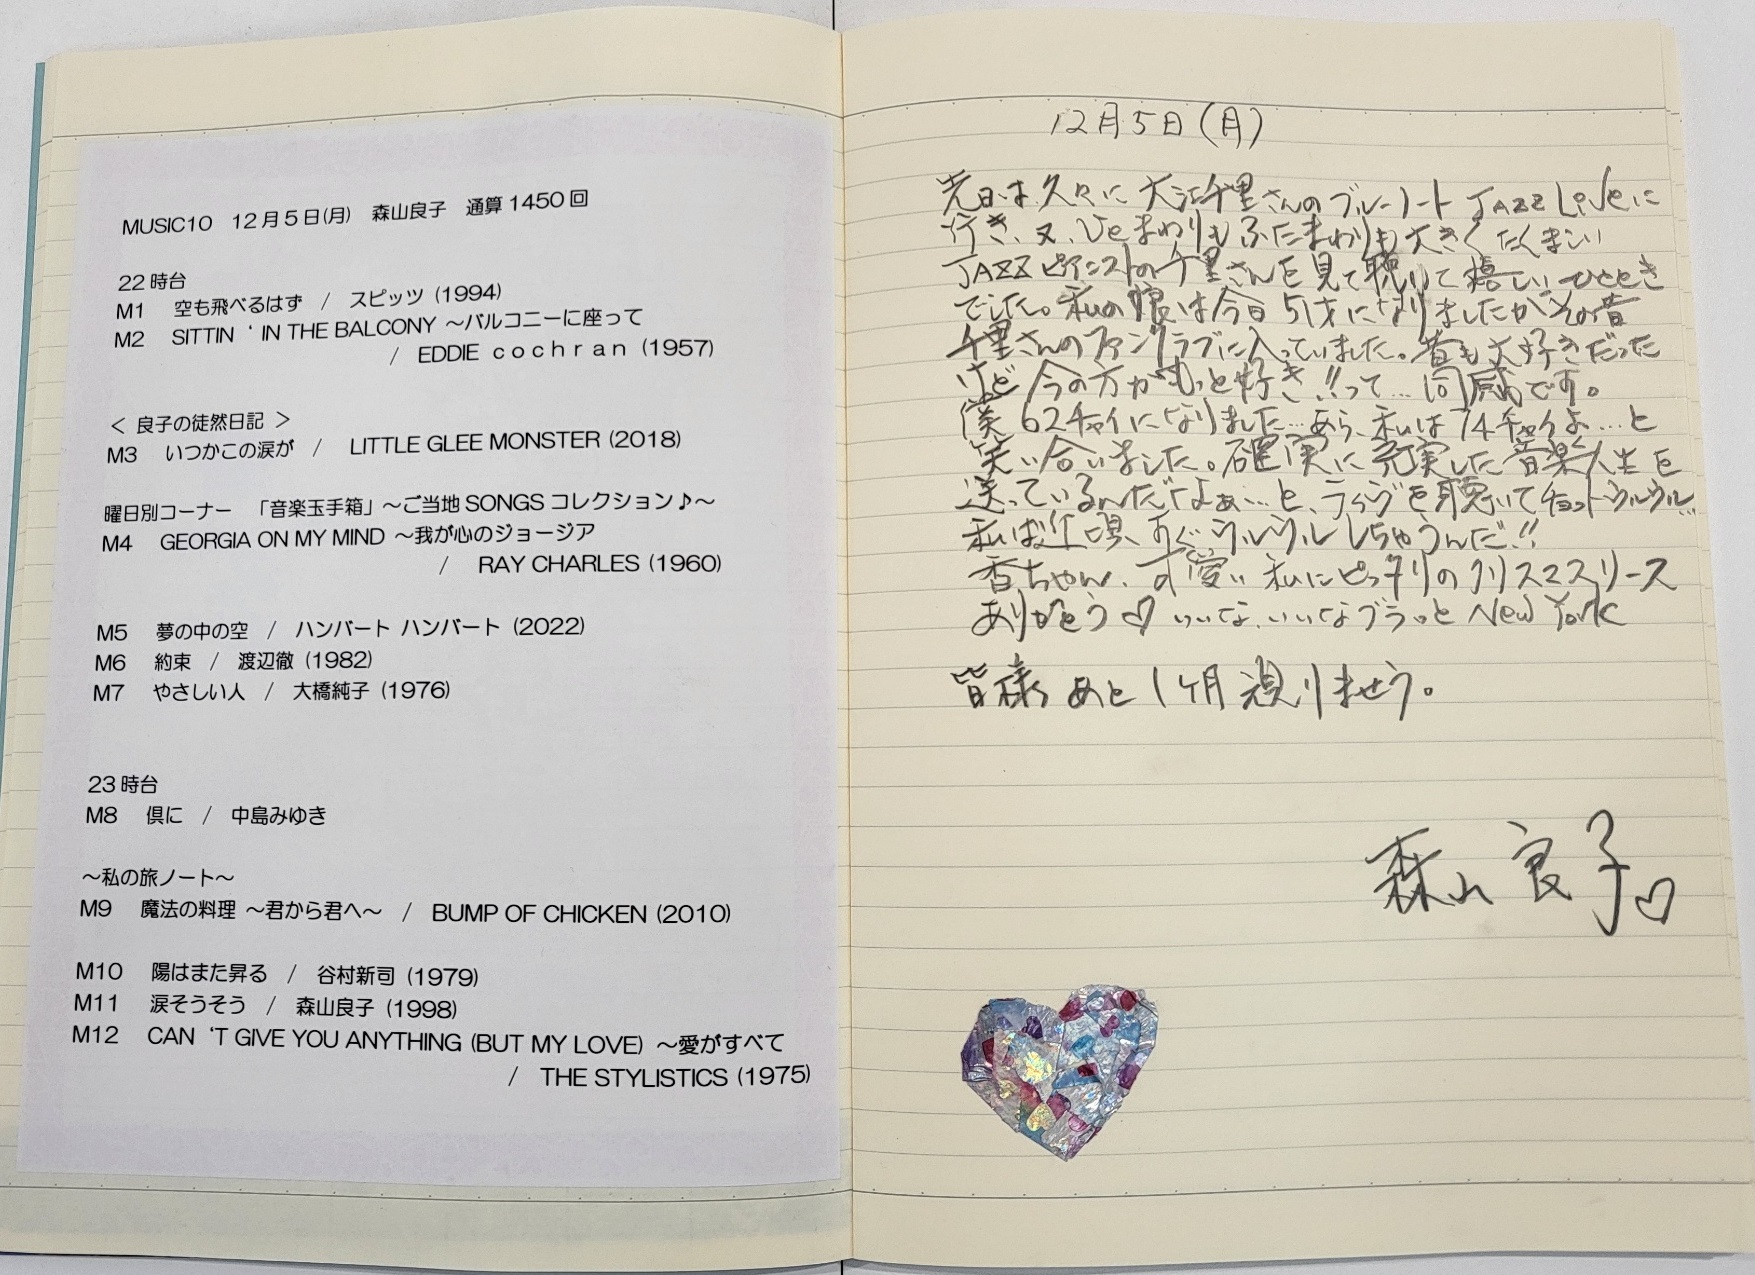 MUSIC10 12月5日(月) 森山良子 通算1450回
22時台
M1 空も飛べるはず / スピッツ (1994)
M2 SITTIN ‘ IN THE BALCONY ～バルコニーに座って
/ EDDIE ｃｏｃｈｒａｎ (1957)
＜ 良子の徒然日記 ＞
M3 いつかこの涙が / LITTLE GLEE MONSTER (2018)
曜日別コーナー 「音楽玉手箱」～ご当地SONGSコレクション♪～
M4 GEORGIA ON MY MIND ～我が心のジョージア
/ RAY CHARLES (1960)
M5 夢の中の空 / ハンバート ハンバート (2022)
M6 約束 / 渡辺徹 (1982)
M7 やさしい人 / 大橋純子 (1976)
23時台
M8 倶に / 中島みゆき
～私の旅ノート～
M9 魔法の料理 ～君から君へ～ / BUMP OF CHICKEN (2010)
M10 陽はまた昇る / 谷村新司 (1979)
M11 涙そうそう / 森山良子 (1998)
M12 CAN ‘T GIVE YOU ANYTHING (BUT MY LOVE) ～愛がすべて
/ THE STYLISTICS (1975)
12月5日(月)
先日は久々に大江千里さんのブルーノート JAZZ Liveに
行き、又、まわりもふたまわりも大きくたくましい
JAZZピアニストの千里さんを見て聴けて嬉しいひととき
でした。私の娘は今日51才になりましたがその昔
千里さんのファンクラブに入っていました。昔も大好きだった
けど今の方がもっと好き!!って…同感です。
僕62チャイになりました…あら、私は74チャイよ…と
笑い合いました。確実に充実した音楽人生を
送っているんだなぁ…と、ライブを聴いてチョットウルウル…
私は近頃、すぐウルウルしちゃうんだ!!
香ちゃん、可愛い私にピッタリのクリスマスリース
ありがとう♡ いいな、いいなブラっと New York
皆様あと1ヶ月張りませう。
森山良子♡